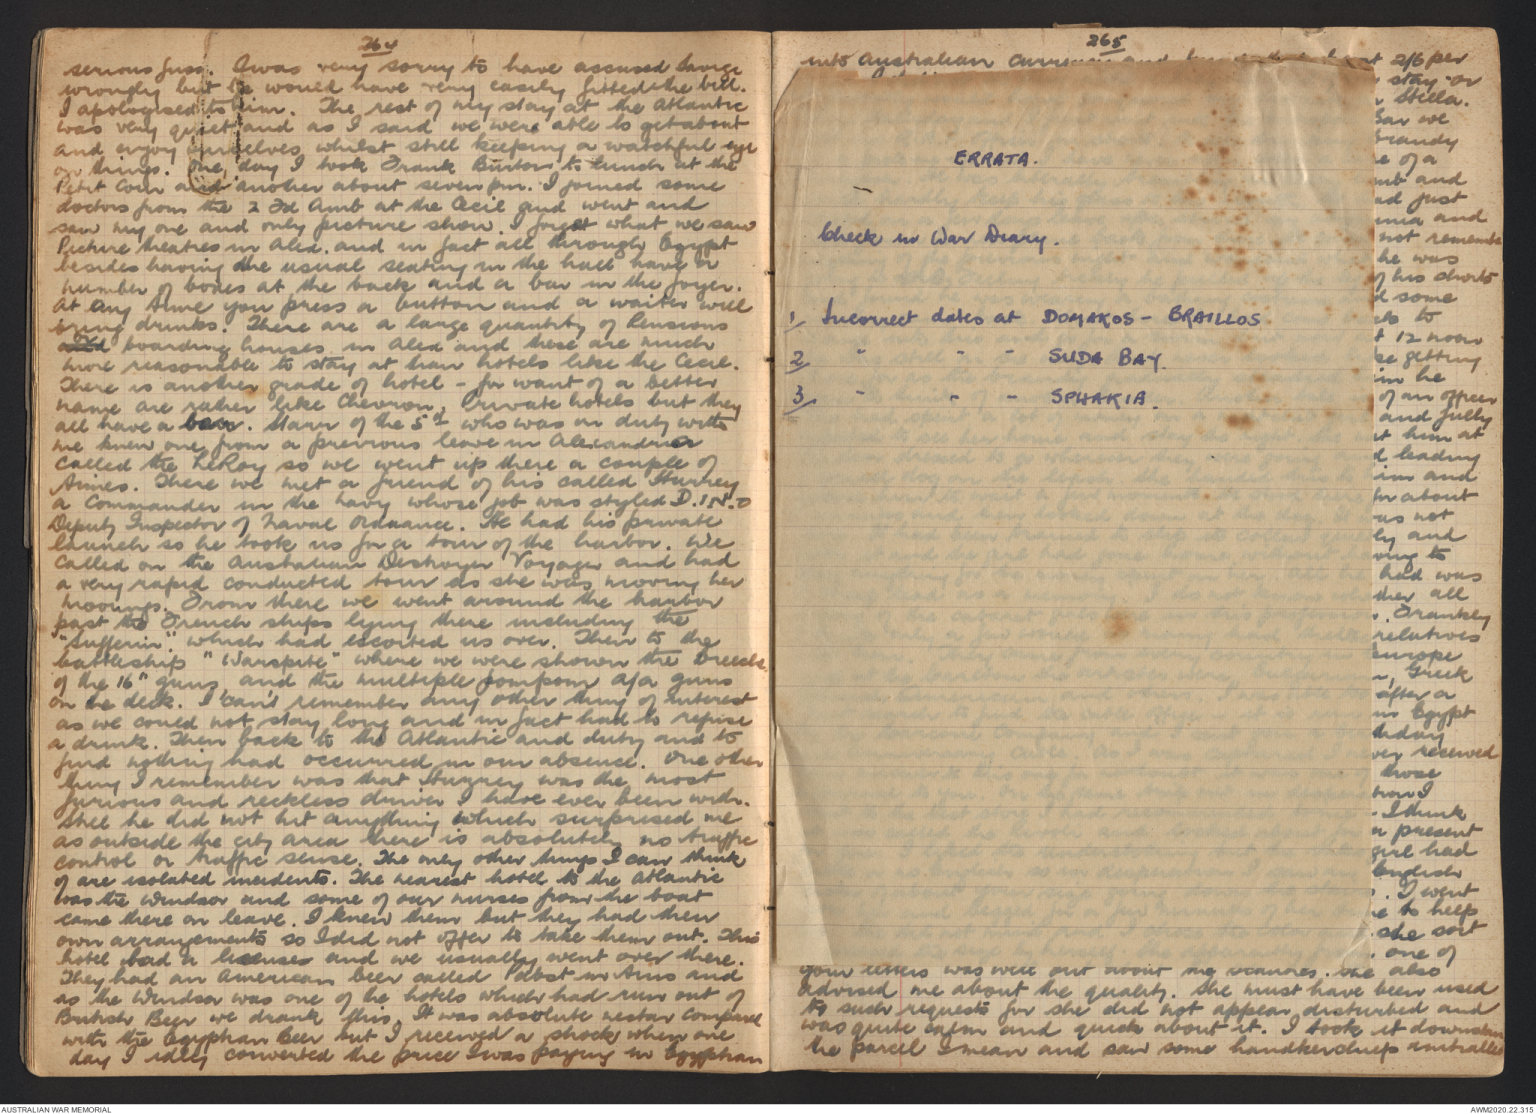 264
serious fuss. I was very sorry to have accused Savige
wrongly but he would have very easily fitted the bill.
I apologised to him. The rest of my stay at the Atlantic
was very quiet and as I said we were able to get about
and enjoy ourselves whilst still keeping a watchful eye
on things. One day I took Frank Burton to lunch at the
Petit Coin and another about seven pm. I joined some
doctors from the 2 Fd Amb at the Cecil and went and
saw my one and only picture show. I forget what we saw
Picture theatres in Alex. and in fact all through Egypt
besides having the usual seating in the hall have a
number of boxes at the back and a bar in the foyer.
At any time you press a button and a waiter will
bring drinks. There are a large quantity of Pensions
boarding houses in Alex and these are much
more reasonable to stay at than hotels like the Cecil.
There is another grade of hotel - for want of a better
name are rather like Chevron, Private hotels but they
all have a bar. Mann of the 5th who was on duty with
me knew one from a previous leave in Alexandria
called the LeRoy so we went up there a couple of
times. There we met a friend of his called
a Commander in the navy whose job was styled D.I.N.O
Deputy Inspector of Naval Ordnance. He had his private
launch so he took us for a tour of the harbor. We
called on the Australian Destroyer Voyager and had
a very rapid conducted tour as she was moving her
moorings. From there we went around the harbor
past the French ships lying there including the
"Sufferin" which had escorted us over. Then to the
battleship "Warspite" where we were shown the breech
of the 16" guns and the multiple pompom a/a guns
on the deck. I can't remember any other thing of interest
as we could not stay long and in fact had to refuse
a drink. Then back to the Atlantic and duty and to
find nothing had occurred in our absence. One other
thing I remember was that was the most
furious and reckless driver I have ever been with.
Still he did not hit anything which surprised me
as outside the city area there is absolutely no traffic
control or traffic sense. The only other things I can think
of are isolated incidents. The nearest hotel to the Atlantic
was the Windsor and some of our nurses from the boat
came there on leave. I knew them but they had their
own arrangements so I did not offer to take them out. This
hotel had a license and we usually went over there.
They had an American beer called Pabst in tins and
as the Windsor was one of the hotels which had run out of
British Beer we drank this. It was absolute nectar compared
with the Egyptian Beer but I received a shock when one
day I idly converted the price I was paying in Egyptian
265
into Australian currency and 2/6 per
stay or
Stella.
Bar we
brandy
e of a
and
ad just
and
not remember
he was
of his shorts
d some
to
t 12 noon
getting
he
of an officer
and fully
t him at
d leading
and
about
was not
ly and
to
had was
all
Frankly
relatives
Europe
Greek
after a
Egypt
received
those
I
I think
a present
girl had
English
I went
to help
she sort
one of
ERRATA.
Check in War Diary.
1, Incorrect dates at DOMAKOS - BRAILLOS
2 " " - SUDA BAY.
3, " " - SPHAKIA.
your letters was were out about my vacancies. She also
advised me about the quality. She must have been used
to such requests for she did not appear disturbed and
was quite calm and quick about it. I took it downstairs
the parcel I mean and saw some handkerchiefs initialled
AUSTRALIAN WAR MEMORIAL
AWM2020.22.315